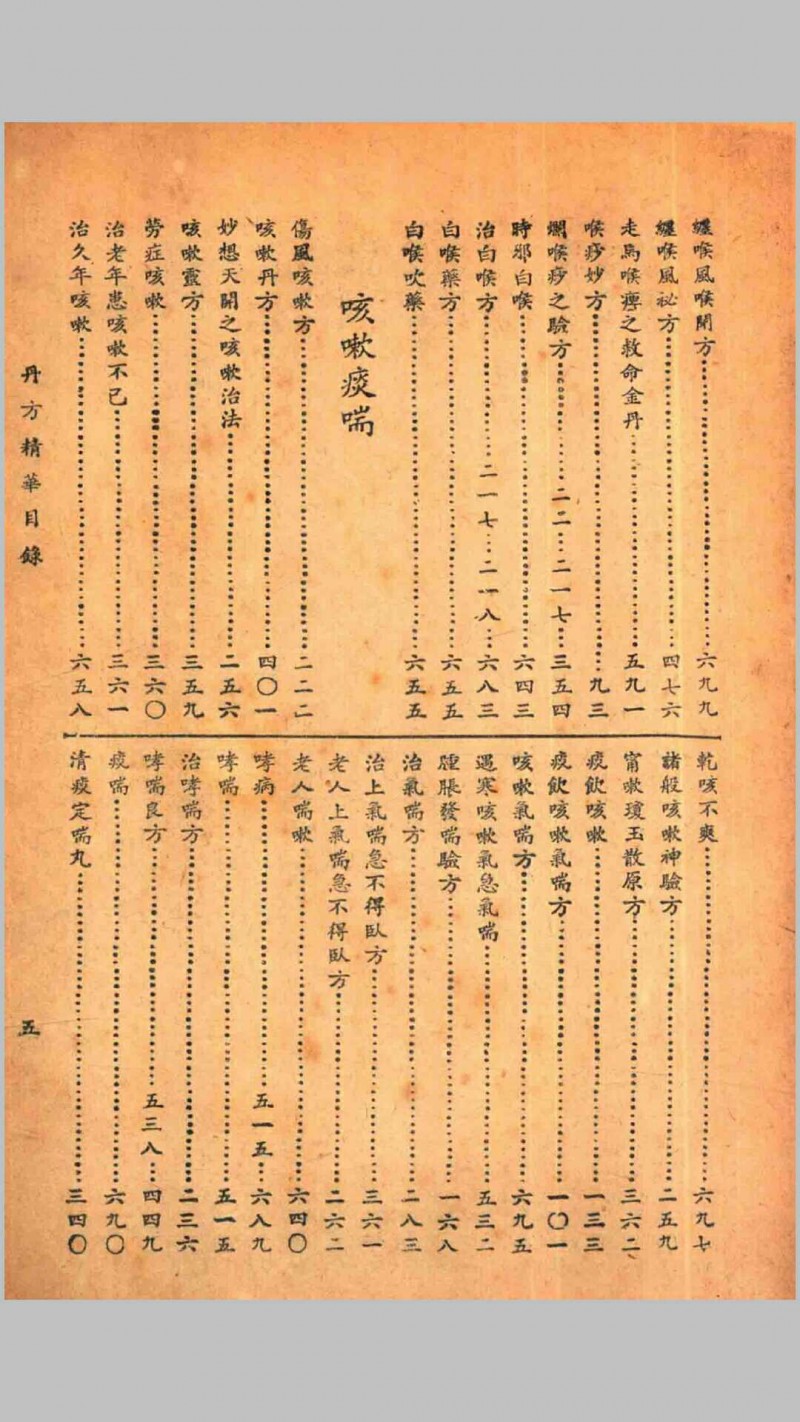 纏喉風喉閉方 六九九
纏喉風祕方 四七六
走馬喉痹之救命金丹 五九一
喉痧妙方 九三
爛喉痧之驗方 二二 二一七 三五四
時邪白喉 六四三
治白喉方 二一七 二一八 六八三
白喉藥方 六五五
白喉吹藥 六五五
咳嗽痰喘
傷風咳嗽方 二二二
咳嗽丹方 四〇一
妙想天開之咳嗽治法 二五六
咳嗽靈方 三五九
勞症咳嗽 三六〇
治老年患咳嗽不已 三六一
治久年咳嗽 六五八
乾咳不爽 六九七
諸般咳嗽神驗方 二五九
甯嗽瓊玉散原方 三六二
痰飲咳嗽 一三三
痰飲咳嗽氣喘方 一〇一
咳嗽氣喘方 六九五
遇寒咳嗽氣急氣喘 五三二
腫脹發喘驗方 一六八
治氣喘方 二八三
治上氣喘急不得臥方 三六一
老人上氣喘急不得臥方 二六二
老人喘嗽 六四〇
哮病 五一五 六八九
哮喘 五一五
治哮喘方 二三六
哮喘良方 五三八 四四九
痰喘 六九〇
清痰定喘丸 三四〇
丹方精華目錄
五